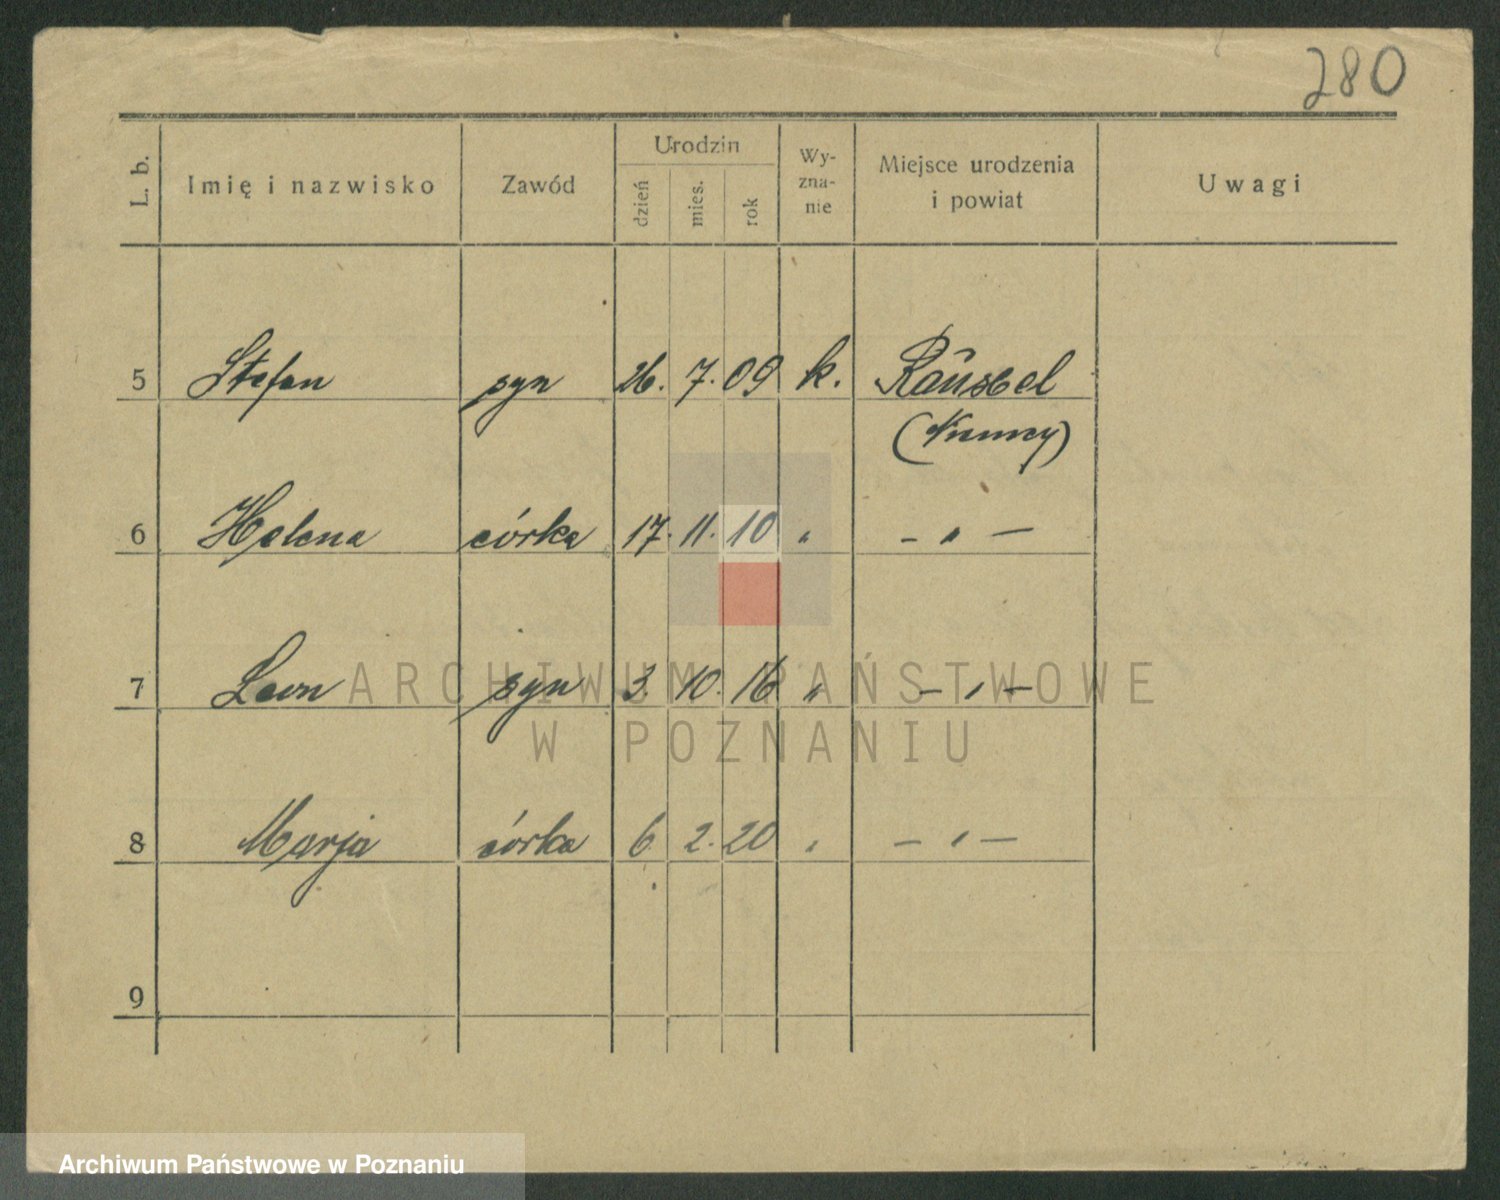 280
L. b. Imię i nazwisko Zawód Urodzin dzień mies. rok Wy-zna-nie Miejsce urodzenia i powiat Uwagi
5 Stefan syn 26. 7. 09 k.
(Niemcy)
6 Helena córka 17. 11. 10 " - " -
7 Leon syn 3. 10. 16 " - " -
8 Marja córka 6. 2. 20 " - " -
9
ARCHIWUM PAŃSTWOWE
W POZNANIU
Archiwum Państwowe w Poznaniu